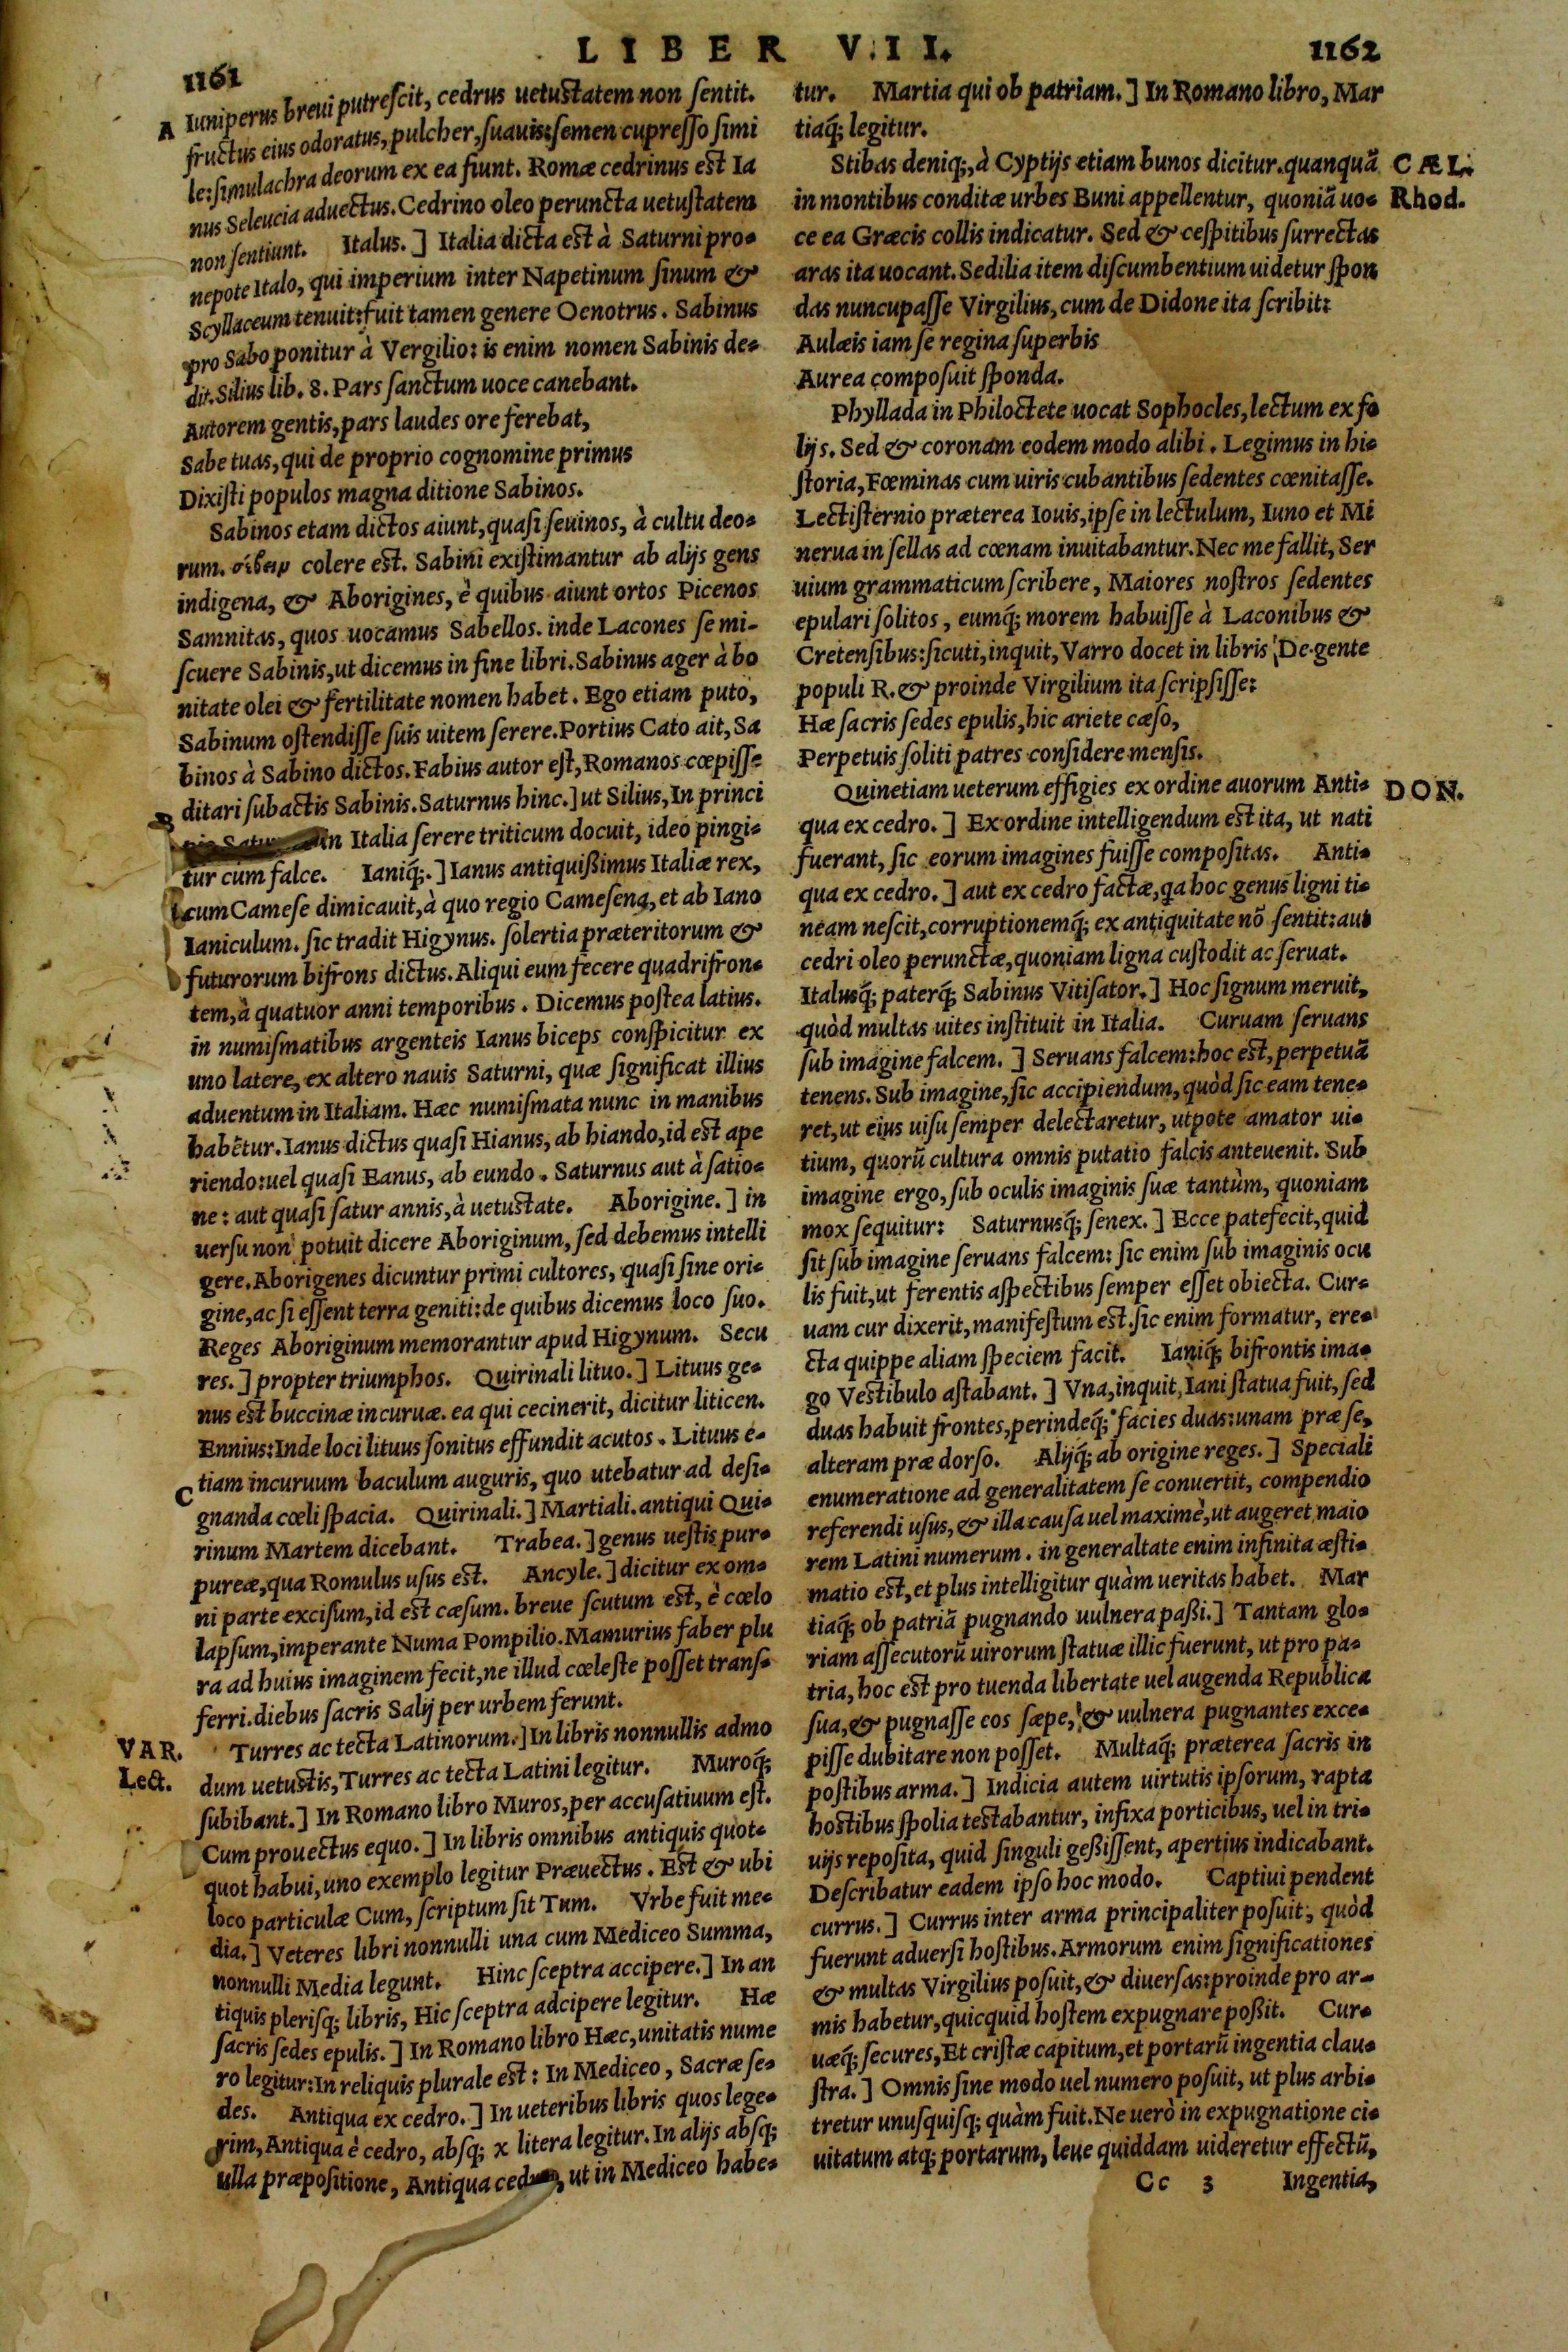 LIBER VII.
1161
A Iuniperus breui putreſcit, cedrus uetuſtatem non ſentit.
fructus eius odoratus, pulcher, ſuauis: ſemen cupreſſo ſimi
le: ſimulachra deorum ex ea fiunt. Romæ cedrinus eſt Ia
nus Seleucia aduectus. Cedrino oleo peruncta uetuſtatem
non ſentiunt. Italus.] Italia dicta eſt à Saturni pro-
nepote Italo, qui imperium inter Napetinum ſinum &
Scyllaceum tenuit: fuit tamen genere Oenotrus. Sabinus
pro Sabo ponitur à Vergilio: is enim nomen Sabinis de-
dit. Silius lib. 8. Pars ſanctum uoce canebant.
Autorem gentis, pars laudes ore ferebat,
Sabe tuas, qui de proprio cognomine primus
Dixiſti populos magna ditione Sabinos.
Sabinos etam dictos aiunt, quaſi ſeuinos, à cultu deo-
rum. σέβειν colere eſt. Sabini exiſtimantur ab alijs gens
indigena, & Aborigines, è quibus aiunt ortos Picenos
Samnitas, quos uocamus Sabellos. inde Lacones ſe mi-
ſcuere Sabinis, ut dicemus in fine libri. Sabinus ager à bo
nitate olei & fertilitate nomen habet. Ego etiam puto,
Sabinum oſtendiſſe ſuis uitem ſerere. Portius Cato ait, Sa
binos à Sabino dictos. Fabius autor eſt, Romanos cœpiſſe
B ditari ſubactis Sabinis. Saturnus hinc.] ut Silius, In princi
in Italia ſerere triticum docuit, ideo pingi-
tur cum falce. Ianiq́;.] Ianus antiquißimus Italiæ rex,
cum Cameſe dimicauit, à quo regio Cameſena, et ab Iano
Ianiculum. ſic tradit Higynus. ſolertia præteritorum &
futurorum bifrons dictus. Aliqui eum fecere quadrifron-
tem, à quatuor anni temporibus. Dicemus poſtea latius.
in numiſmatibus argenteis Ianus biceps conſpicitur ex
uno latere, ex altero nauis Saturni, quæ ſignificat illius
aduentum in Italiam. Hæc numiſmata nunc in manibus
habẽtur. Ianus dictus quaſi Hianus, ab hiando, id eſt ape
riendo: uel quaſi Eanus, ab eundo. Saturnus aut à ſatio-
ne: aut quaſi ſatur annis, à uetuſtate. Aborigine.] in
uerſu non potuit dicere Aboriginum, ſed debemus intelli
gere. Aborigenes dicuntur primi cultores, quaſi ſine ori-
gine, ac ſi eſſent terra geniti: de quibus dicemus loco ſuo.
Reges Aboriginum memorantur apud Higynum. Secu
res.] propter triumphos. Quirinali lituo.] Lituus ge-
nus eſt buccinæ incuruæ. ea qui cecinerit, dicitur liticen.
Ennius: Inde loci lituus ſonitus effundit acutos. Lituus e-
C tiam incuruum baculum auguris, quo utebatur ad deſi-
gnanda cœli ſpacia. Quirinali.] Martiali. antiqui Qui-
rinum Martem dicebant. Trabea.] genus ueſtis pur-
pureæ, qua Romulus uſus eſt. Ancyle.] dicitur ex om-
ni parte exciſum, id eſt cæſum. breue ſcutum eſt, è cœlo
lapſum, imperante Numa Pompilio. Mamurius faber plu
ra ad huius imaginem fecit, ne illud cœleſte poſſet transf-
ferri. diebus ſacris Salij per urbem ferunt.
VAR. Lect.
Turres ac tecta Latinorum.] In libris nonnullis admo
dum uetuſtis, Turres ac tecta Latini legitur. Muroq́;
ſubibant.] In Romano libro Muros, per accuſatiuum eſt.
Cum prouectus equo.] In libris omnibus antiquis quot-
quot habui, uno exemplo legitur Præuectus. Eſt & ubi
loco particulæ Cum, ſcriptum ſit Tum. Vrbe fuit me-
dia.] Veteres libri nonnulli una cum Mediceo Summa,
nonnulli Media legunt. Hinc ſceptra accipere.] In an
tiquis pleriſq; libris, Hic ſceptra adcipere legitur. Hæ
ſacris ſedes epulis.] In Romano libro Hæc, unitatis nume
ro legitur: In reliquis plurale eſt: In Mediceo, Sacræ ſe-
des. Antiqua ex cedro.] In ueteribus libris quos lege-
rim, Antiqua è cedro, abſq; x litera legitur. In alijs abſq;
ulla præpoſitione, Antiqua ut in Mediceo habe-
1162
tur. Martia qui ob patriam.] In Romano libro, Mar
tiaq́; legitur.
CÆL. Rhod.
Stibas deniq;, à Cyptijs etiam bunos dicitur. quanquã
in montibus conditæ urbes Buni appellentur, quoniã uo-
ce ea Græcis collis indicatur. Sed & ceſpitibus ſurrectas
aras ita uocant. Sedilia item diſcumbentium uidetur ſpon
das nuncupaſſe Virgilius, cum de Didone ita ſcribit:
Aulæis iam ſe regina ſuperbis
Aurea compoſuit ſponda.
Phyllada in Philoctete uocat Sophocles, lectum ex fo
lijs. Sed & coronam eodem modo alibi. Legimus in hi-
ſtoria, Fœminas cum uiris cubantibus ſedentes cœnitaſſe.
Lectiſternio præterea Iouis, ipſe in lectulum, Iuno et Mi
nerua in ſellas ad cœnam inuitabantur. Nec me fallit, Ser
uium grammaticum ſcribere, Maiores noſtros ſedentes
epulari ſolitos, eumq́; morem habuiſſe à Laconibus &
Cretenſibus: ſicuti, inquit, Varro docet in libris De gente
populi R. & proinde Virgilium ita ſcripſiſſe:
Hæ ſacris ſedes epulis, hic ariete cæſo,
Perpetuis ſoliti patres conſidere menſis.
DON.
Quinetiam ueterum effigies ex ordine auorum Anti-
qua ex cedro.] Ex ordine intelligendum eſt ita, ut nati
fuerant, ſic eorum imagines fuiſſe compoſitas. Anti-
qua ex cedro.] aut ex cedro factæ, qa hoc genus ligni ti-
neam neſcit, corruptionemq́; ex antiquitate nõ ſentit: aut
cedri oleo perunctæ, quoniam ligna cuſtodit ac ſeruat.
Italusq́; paterq́; Sabinus Vitiſator.] Hoc ſignum meruit,
quòd multas uites inſtituit in Italia. Curuam ſeruans
ſub imagine falcem.] Seruans falcem: hoc eſt, perpetuã
tenens. Sub imagine, ſic accipiendum, quòd ſic eam tene-
ret, ut eius uiſu ſemper delectaretur, utpote amator ui-
tium, quorũ cultura omnis putatio falcis anteuenit. Sub
imagine ergo, ſub oculis imaginis ſuæ tantùm, quoniam
mox ſequitur: Saturnusq́; ſenex.] Ecce patefecit, quid
ſit ſub imagine ſeruans falcem: ſic enim ſub imaginis ocu
lis fuit, ut ferentis aſpectibus ſemper eſſet obiecta. Cur-
uam cur dixerit, manifeſtum eſt. ſic enim formatur, ere-
cta quippe aliam ſpeciem facit. Ianiq́; bifrontis ima-
go Veſtibulo aſtabant.] Vna, inquit, Iani ſtatua fuit, ſed
duas habuit frontes, perindeq́; facies duas: unam præ ſe,
alteram præ dorſo. Alijq́; ab origine reges.] Speciali
enumeratione ad generalitatem ſe conuertit, compendio
referendi uſus, & illa cauſa uel maximè, ut augeret maio
rem Latini numerum. in generaltate enim infinita æſti-
matio eſt, et plus intelligitur quàm ueritas habet. Mar
tiaq́; ob patriã pugnando uulnera paßi.] Tantam glo-
riam aſſecutorũ uirorum ſtatuæ illic fuerunt, ut pro pa-
tria, hoc eſt pro tuenda libertate uel augenda Republica
ſua, & pugnaſſe eos ſæpe, & uulnera pugnantes exce-
piſſe dubitare non poſſet. Multaq́; præterea ſacris in
poſtibus arma.] Indicia autem uirtutis ipſorum, rapta
hoſtibus ſpolia teſtabantur, infixa porticibus, uel in tri-
uijs repoſita, quid ſinguli geßiſſent, apertius indicabant.
Deſcribatur eadem ipſo hoc modo. Captiui pendent
currus.] Currus inter arma principaliter poſuit, quòd
fuerunt aduerſi hoſtibus. Armorum enim ſignificationes
& multas Virgilius poſuit, & diuerſas: proinde pro ar-
mis habetur, quicquid hoſtem expugnare poßit. Cur-
uæq́; ſecures, Et criſtæ capitum, et portarũ ingentia clau-
ſtra.] Omnis ſine modo uel numero poſuit, ut plus arbi-
tretur unuſquiſq; quàm fuit. Ne uerò in expugnatione ci-
uitatum atq; portarum, leue quiddam uideretur effectũ,
Cc 3 Ingentia,